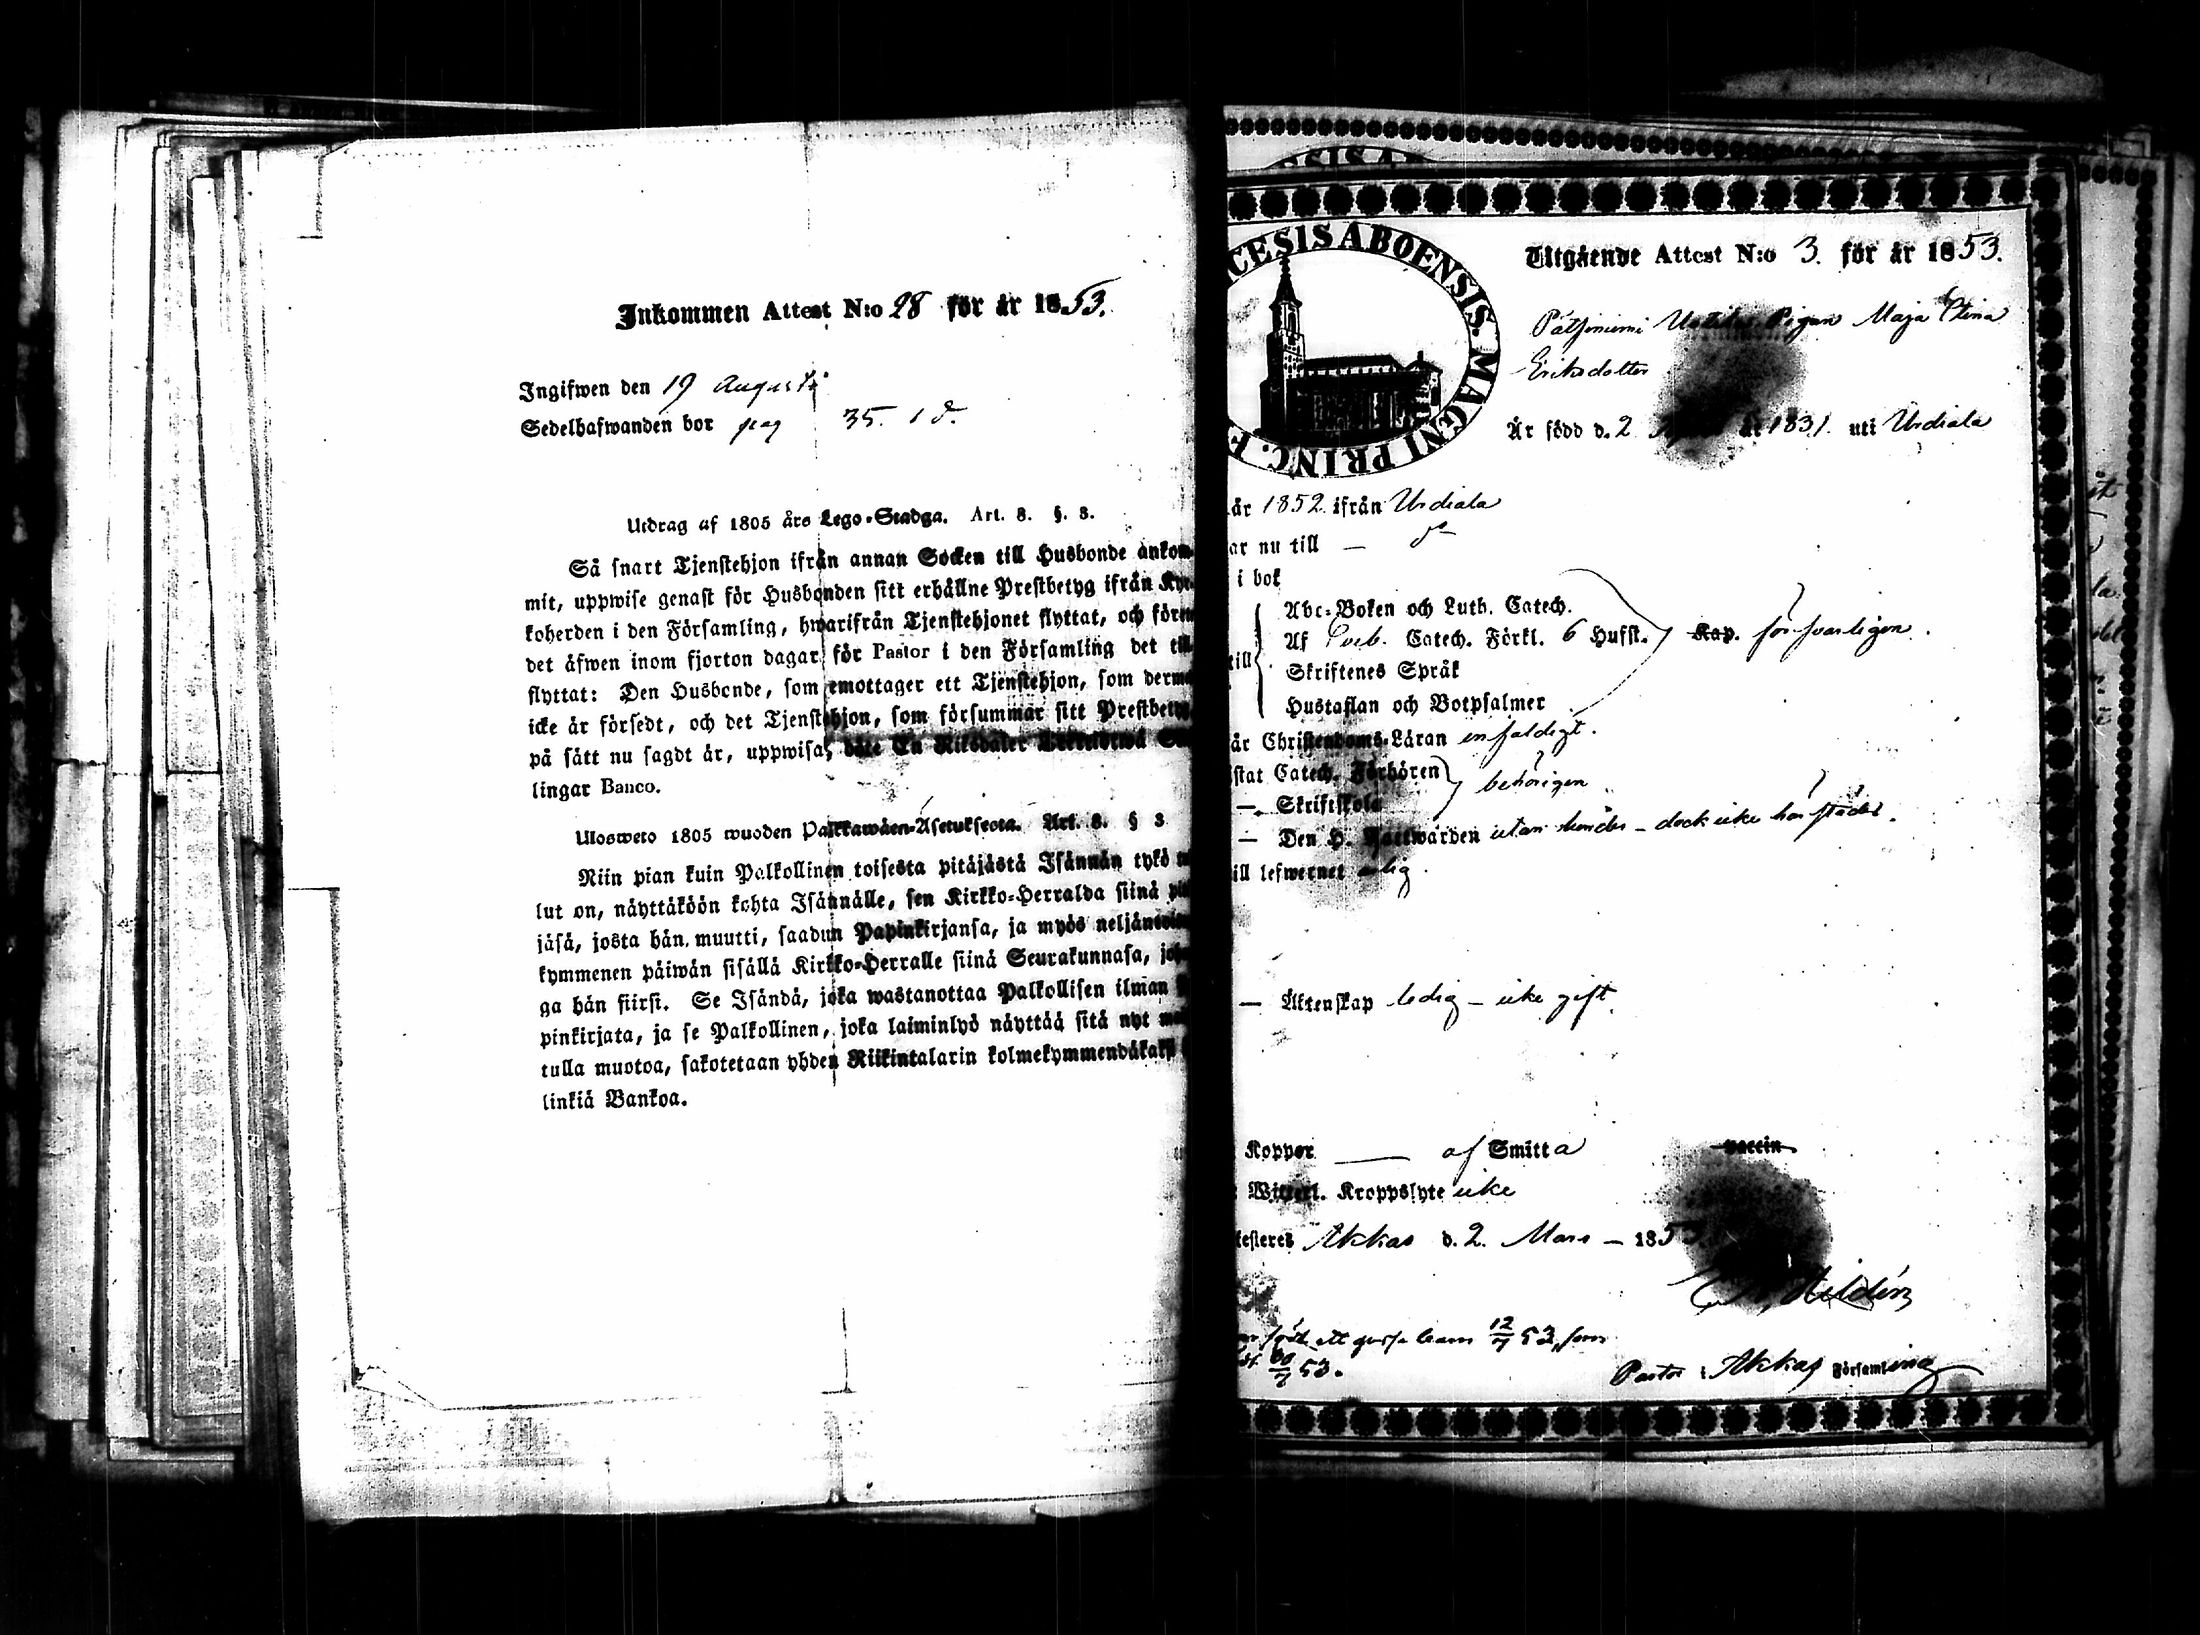 Inkommen Attest N:o 28 för år 1853.
Ingifwen den 19 Augusti
Sedelhafwanden bor pag 35. 1 d.
Utdrag af 1805 års Lego-Stadga. Art. 8. §. 3.
Så snart Tjenstehjon ifrån annan Socken till Husbonde ankom-
mit, uppwise genast för Husbonden sitt erhållne Prestbetyg ifrån Kyr-
koherden i den Församling, hwarifrån Tjenstehjonet flyttat, och förete
det äfwen inom fjorton dagar för Pastor i den Församling det till-
flyttat: Den Husbonde, som emottager ett Tjenstehjon, som dermed
icke är försedt, och det Tjenstehjon, som försummar sitt Prestbetyg
på sätt nu sagdt är, uppwisa, böte En Riksdaler
lingar Banco.
Ulosweto 1805 wuoden Palkkawäen-Asetuksesta. Art. 8. § 3
Niin pian kuin Palkollinen toisesta pitäjästä Isännän tykö
lut on, näyttäköön kohta Isännälle, sen Kirkko-Herralda siinä
jäsä, josta hän muutti, saadun Papinkirjansa, ja myös neljäntoista
kymmenen päiwän sisällä Kirkko-Herralle siinä Seurakunnasa,
ga hän siirst. Se Isändä, joka wastanottaa Palkollisen ilman
pinkirjata, ja se Palkollinen, joka laiminlyö näyttää sitä nyt
tulla muotoa, sakotetaan yhden Riikintalarin kolmekymmendäkaksi
linkiä Bankoa.
CESIS ABOENSIS. MAGNI PRINC. F
Utgående Attest N:o 3. för år 1853.
Pigan Maja Stina
Eriksdotter
Är född d. 2 år 1831. uti Urdiala
år 1852. ifrån Urdiala
ar nu till — d:o
i bok
Abc-Boken och Luth. Catech.
Af Sveb. Catech. Förkl. 6 Hufst. Kap. försvarligen.
till Skriftenes Språk
Hustaflan och Botpsalmer
är Christendoms-Läran enfaldigt.
stat Catech. Förhören behörigen
— Skriftskola
— Den H. Nattwarden utan hinder – dock icke härstädes.
ill lefwernet
— Äktenskap ledig – icke gift.
Koppor — af Smitta vaccin
Witterl. Kroppslyte icke
testeres Akkas d. 2. Mars – 1853
Hildén
födt ett gosse barn 12/7 53, som
/7 53.
Pastor i Akkas Församling